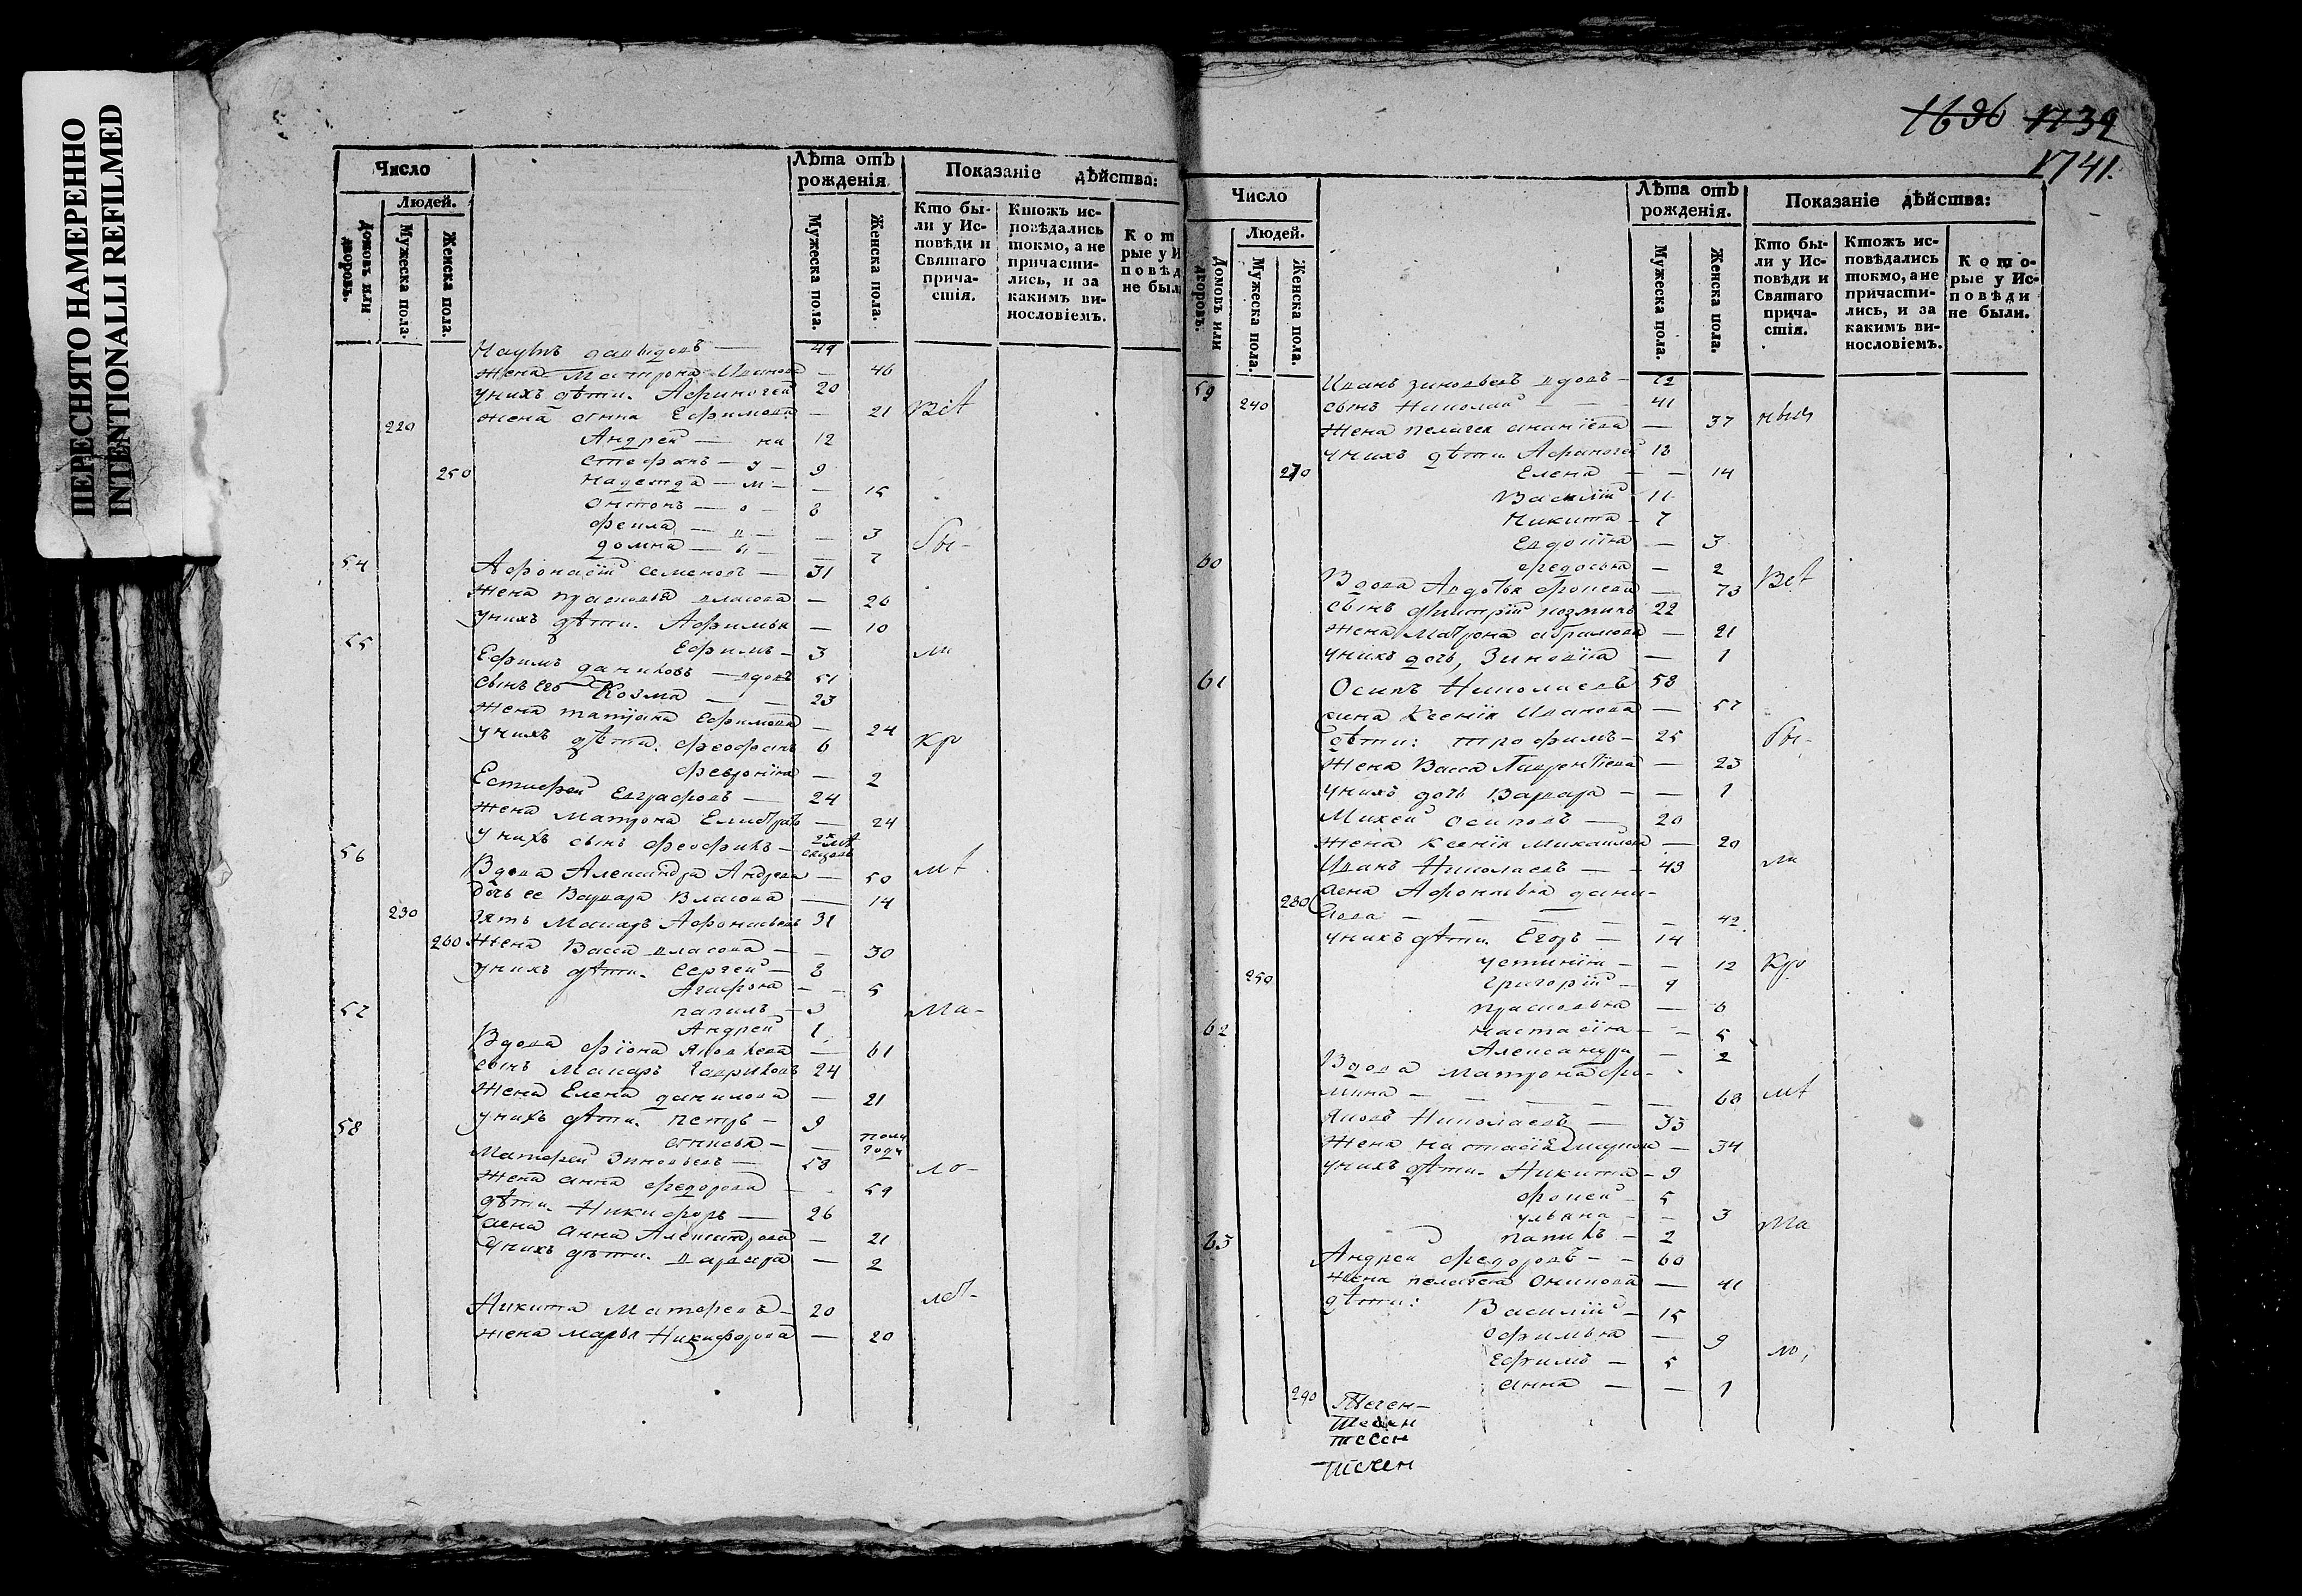 ПЕРЕСНЯТО НАМЕРЕННО
INTENTIONALLI REFILMED
Число
Лѣта отъ рожденія
Показаніе дѣйства:
Людей.
Домовъ или дворовъ.
Мужеска пола.
Женска пола.
Мужеска пола.
Женска пола.
Кто бы-
ли у Ис-
повѣди и
Святаго
прича-
стія.
Ктожъ ис-
повѣдались
токмо, а не
причасти-
лись, и за
какимъ ви-
нословіемъ.
Кот
рые у И
повѣд
не был
Наумъ давыдовъ — 49
жена Матрона Иванова — 46
унихъ дѣти. Афиноген 20
жена анна Ефимова — 21 Всѣ
220 Андрей — 12
стефанъ — 9
250 надежда — 15
антонъ — 8
феила — 3 бы-
домна — 7
54 Афонасій семеновъ — 31
жена прасковья власова — 26
унихъ дѣти. Афимья — 10
Ефимъ — 3 ли
55 Ефимъ даниловъ вдовъ 51
сынъ его Козма — 23
жена татіяна Ефимова — 24
унихъ дѣти. феофанъ 6 кро
феврониа — 2
Естифей Евграфовъ — 24
жена Матрона Елистрат — 24
унихъ сынъ феофилъ —
56 Вдова Александра Андреева — 50 мѣ
дочь ее Варвара Власова — 14
230 зять Макаръ Афонасьевъ 31
260 жена Васса власова — 30
унихъ дѣти. сергей — 8
Агафона — 5
папилъ — 3 ма-
Андрей 1
57 Вдова фіона яковлева — 61
сынъ Макаръ Гавриловъ 24
жена Елена данилова — 21
унихъ дѣти. петръ — 9
анисья — полугоду
58 Матфей Зиновьевъ — 58 ло-
жена анна федорова — 59
дѣти. Никифоръ — 26
жена анна Александрова — 21
унихъ дѣти. варвара — 2
Никита Матфеевъ — 20 лѣт-
жена марья Никифорова — 20
1696 1739
1741.
Число
Лѣта отъ рожденія.
Показаніе дѣйства:
Людей.
Домовъ или дворовъ.
Мужеска пола.
Женска пола.
Мужеска пола.
Женска пола.
Кто бы-
ли у Ис-
повѣди и
Святаго
прича-
стія.
Ктожъ ис-
повѣдались
токмо, а не
причасти-
лись, и за
какимъ ви-
нословіемъ.
Кото-
рые у Ис-
повѣди
не были.
59 Иванъ зиновьевъ вдовъ — 72
240 сынъ Николай — 41
жена пелагея ананіева — 37 ныи
унихъ дѣти. Афиноген 18
270 Елена — 14
Василій — 11
Никита — 7
Евдокіа — 3
федосья — 2
60 Вдова Авдотья фокеева — 73 Всѣ
сынъ дмитрій козминъ 22
жена Матрона абрамова — 21
унихъ дочь, Зиновіа — 1
61 Осипъ Николаевъ 58
жена Ксенія Иванова — 57
дѣти: трофимъ — 25 бы-
жена Васса Лаврентіева — 23
унихъ дочь Варвара — 1
Михей осиповъ — 20
жена ксенія михаилова — 20
Иванъ Николаевъ — 43 ли
280 жена Афонасьіа дани-
лова — 42
унихъ дѣти. Егоръ — 14
устиніа — 12 Кро
250 григорій — 9
прасковья — 6
настасіа — 5
Александра — 2
62 Вдова Матрона фо-
мина — 68 мѣ
яковъ Николаевъ — 33
жена настасія — 34
унихъ дѣти. Никита — 9
фокей — 5
ульяна — 3 ма
папилъ — 2
63 Андрей федоровъ — 60
жена пелагея — 41
дѣти: Василій — 15
офимья — 9
Ефимъ — 5 ло,
290 анна — 1